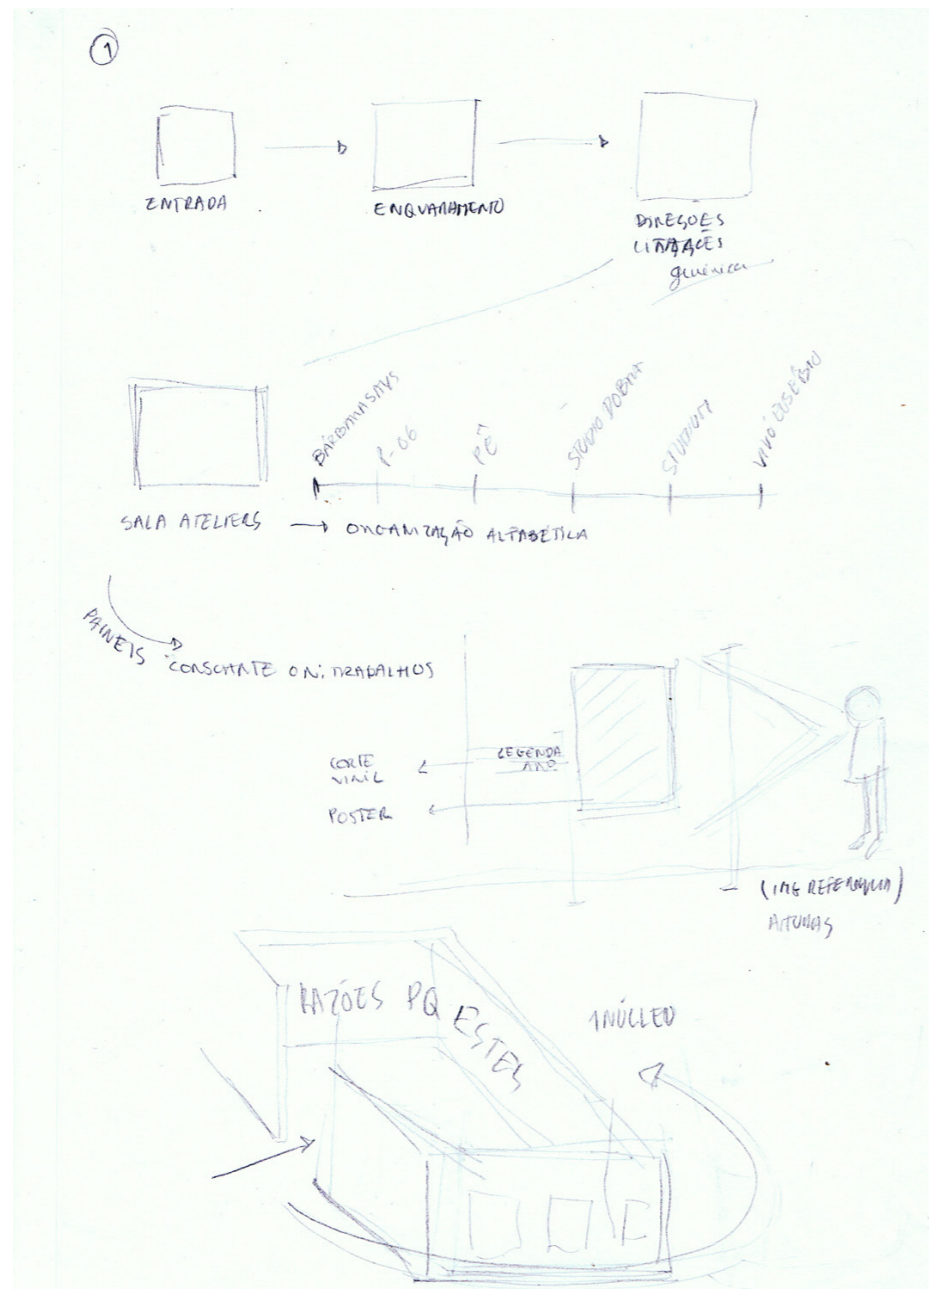 1
ENTRADA
ENQUADRAMENTO
DIREÇÕES
genérica
BÁRBARASAYS
P-06
PÊ
STUDIO DOBRA
STUDIUM
VIVÓ EUSÉBIO
SALA ATELIERS → ORGANIZAÇÃO ALFABÉTICA
PAINEIS
CONSOANTE O Nº. TRABALHOS
LEGENDA
ANO
CORTE
VINIL
POSTER
(IMG REFERÊNCIA)
ALTURAS
RAZÕES PQ ESTES
1NÚCLEO